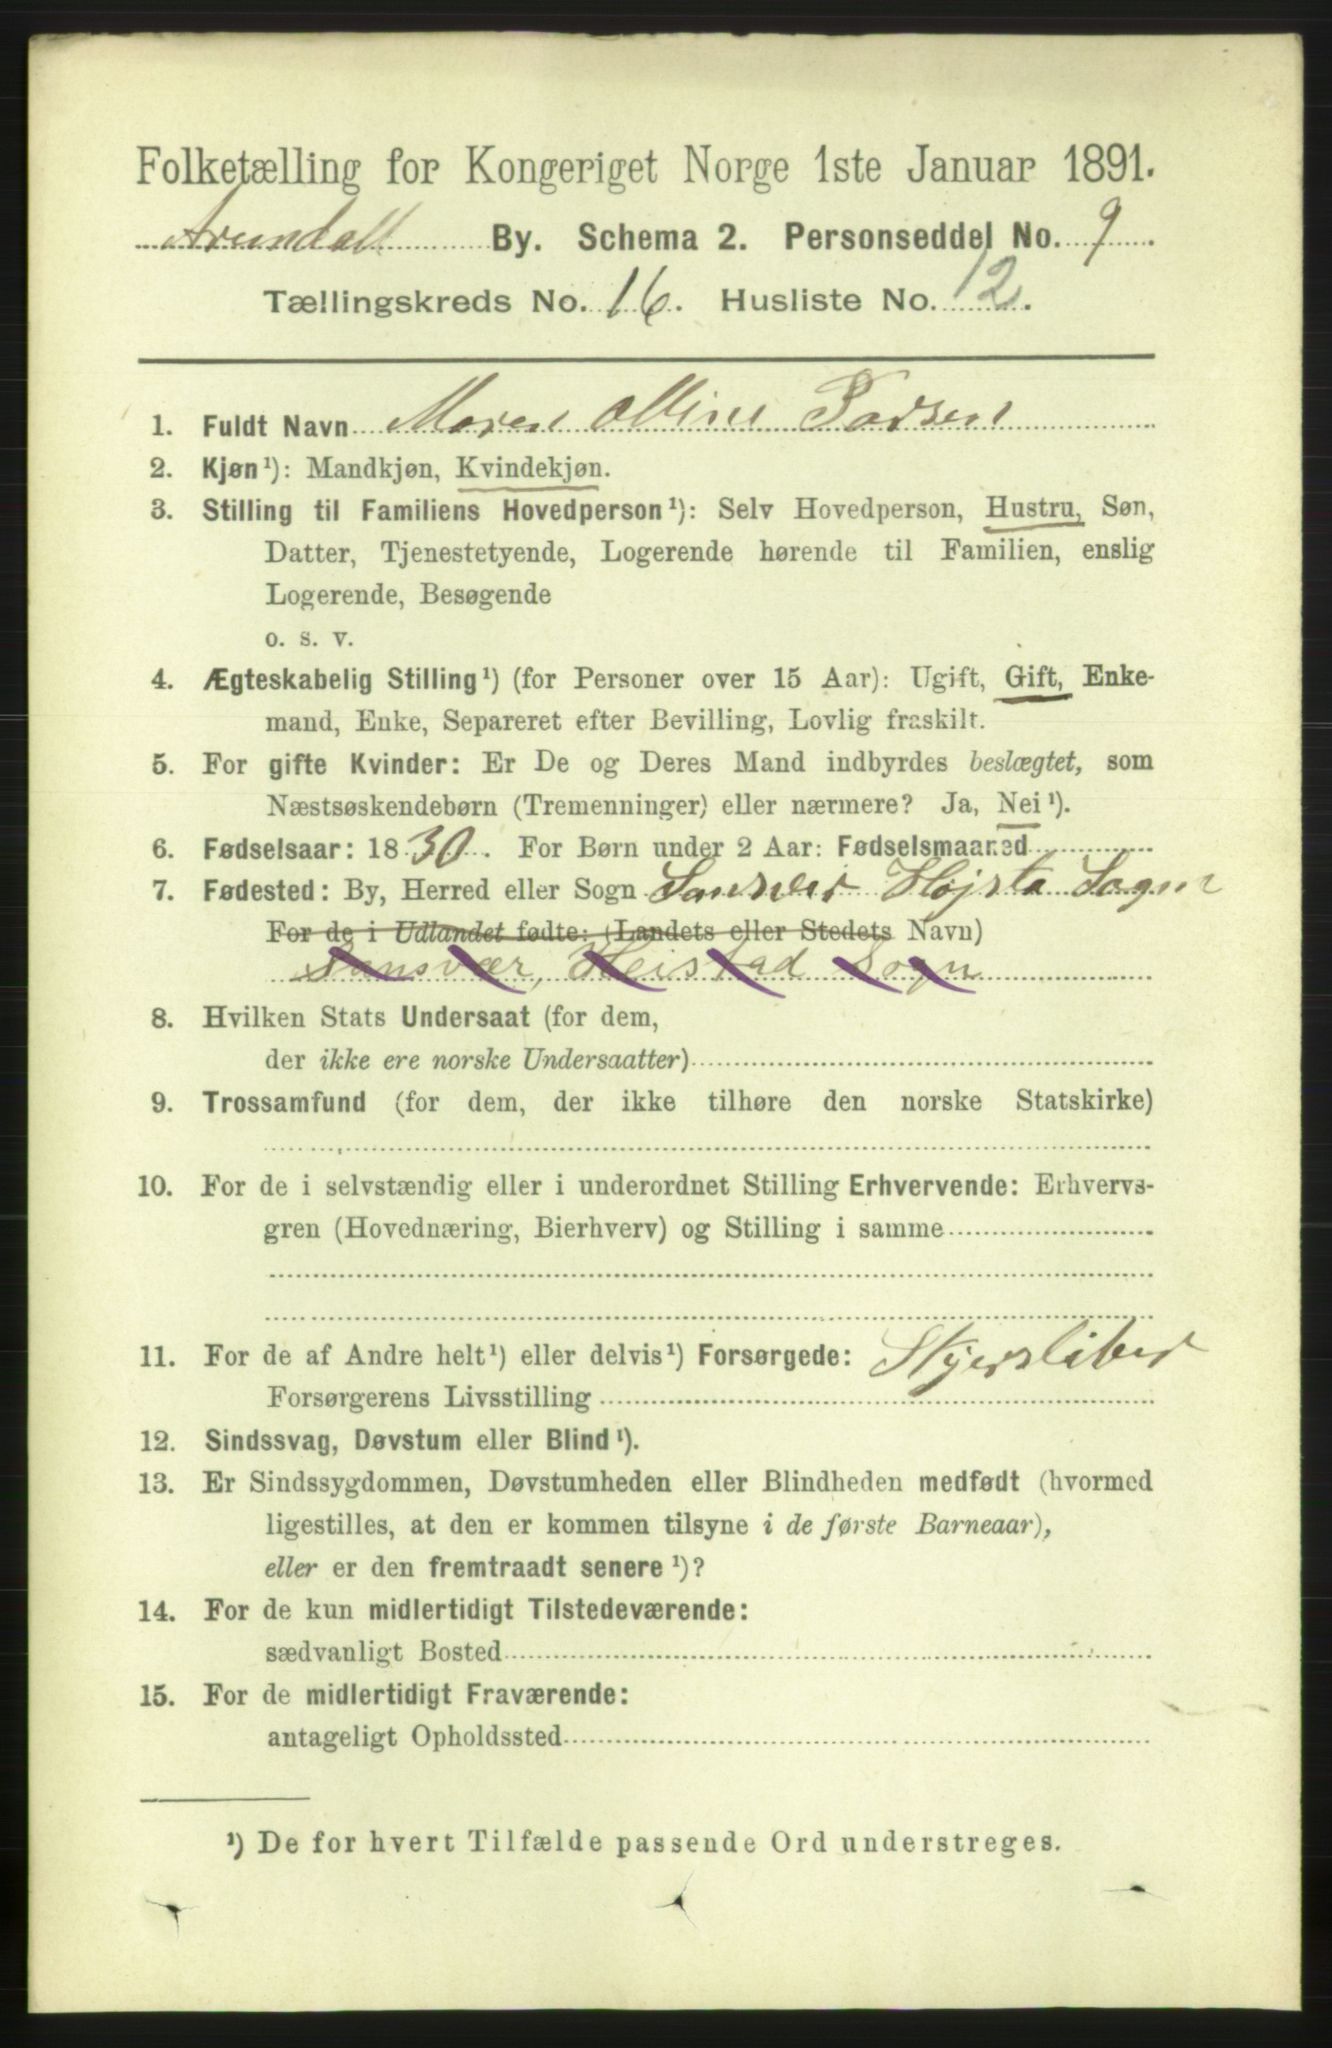 Folketælling for Kongeriget Norge 1ste Januar 1891.
Arendall By. Schema 2. Personseddel No. 9.
Tællingskreds No. 16. Husliste No. 12.
1. Fuldt Navn Maren Oline Larsen
2. Kjøn¹): Mandkjøn, Kvindekjøn.
3. Stilling til Familiens Hovedperson¹): Selv Hovedperson, Hustru, Søn,
Datter, Tjenestetyende, Logerende hørende til Familien, enslig
Logerende, Besøgende
o. s. v.
4. Ægteskabelig Stilling¹) (for Personer over 15 Aar): Ugift, Gift, Enke-
mand, Enke, Separeret efter Bevilling, Lovlig fraskilt.
5. For gifte Kvinder: Er De og Deres Mand indbyrdes beslægtet, som
Næstsøskendebørn (Tremenninger) eller nærmere? Ja, Nei¹).
6. Fødselsaar: 1830. For Børn under 2 Aar: Fødselsmaaned
7. Fødested: By, Herred eller Sogn Sansvær Højsta Sogn
For de i Udlandet fødte: (Landets eller Stedets Navn)
Sansvær, Heistad Sogn
8. Hvilken Stats Undersaat (for dem,
der ikke ere norske Undersaatter)
9. Trossamfund (for dem, der ikke tilhøre den norske Statskirke)
10. For de i selvstændig eller i underordnet Stilling Erhvervende: Erhvervs-
gren (Hovednæring, Bierhverv) og Stilling i samme
11. For de af Andre helt¹) eller delvis¹) Forsørgede: Skjersliber
Forsørgerens Livsstilling
12. Sindssvag, Døvstum eller Blind¹).
13. Er Sindssygdommen, Døvstumheden eller Blindheden medfødt (hvormed
ligestilles, at den er kommen tilsyne i de første Barneaar),
eller er den fremtraadt senere¹)?
14. For de kun midlertidigt Tilstedeværende:
sædvanligt Bosted
15. For de midlertidigt Fraværende:
antageligt Opholdssted
¹) De for hvert Tilfælde passende Ord understreges.